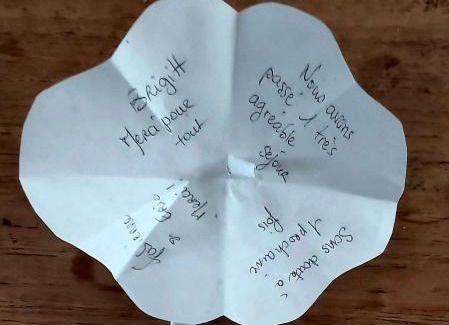 Brigitt
Merci pour
tout
Nous avons
passé 1 très
agréable
séjour
Sans doute à
1 prochaine
fois
Merci !
Fabienne
& Eric